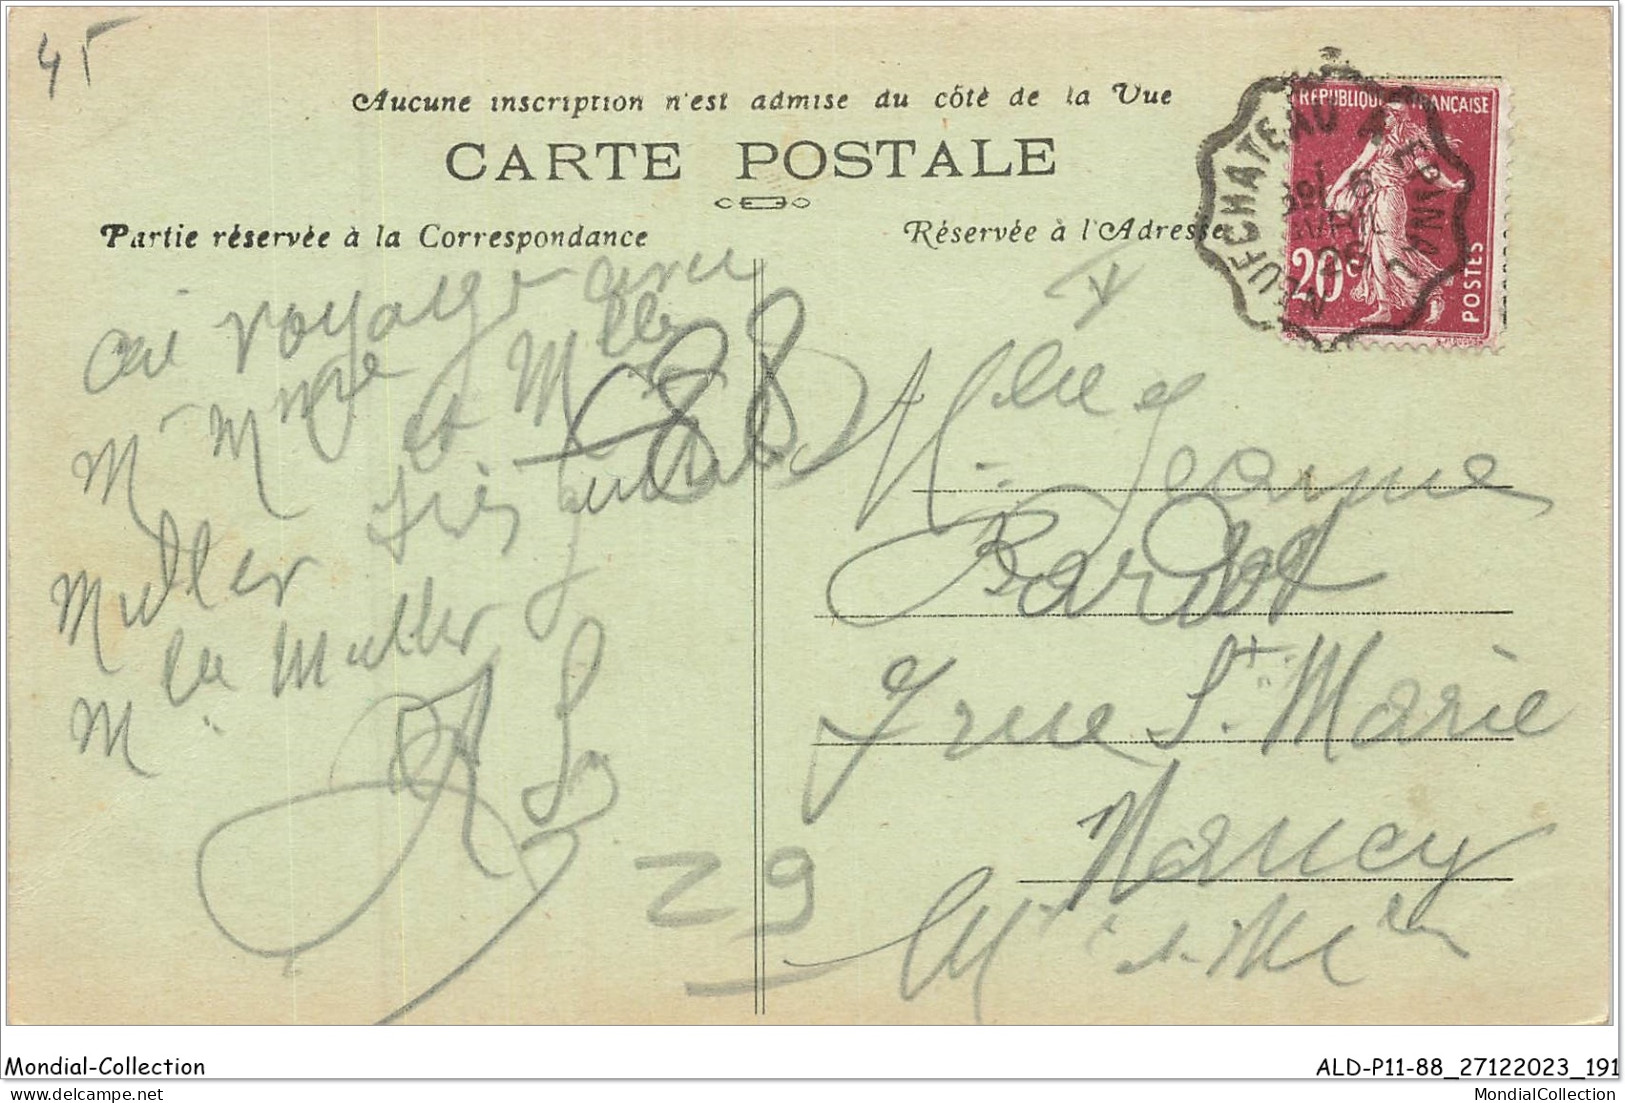 45
Aucune inscription n'est admise du côté de la Vue
CARTE POSTALE
Partie réservée à la Correspondance
Réservée à l'Adresse
RÉPUBLIQUE FRANÇAISE
20c
POSTES
NEUFCHATEAU A EPINAL
6
AVRIL
ai voyagé avec
Mr Mme et Mlle
Muller très
Mlle Muller
88
29
Mlle
Jeanne
Bardot
7 rue St Marie
Nancy
Mondial-Collection
ALD-P11-88_27122023_191
MondialCollection